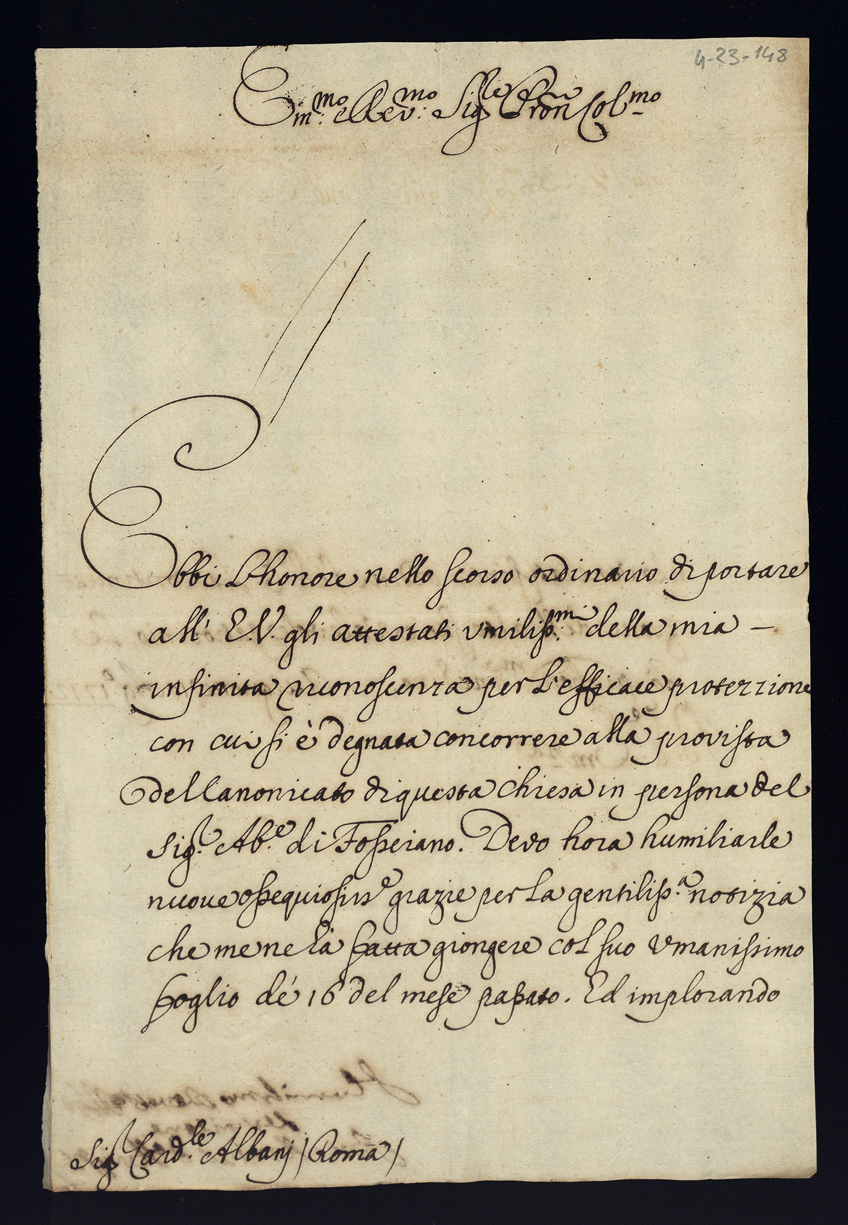 4-23-148
Em.mo e Rev.mo Sig.le Pron Col.mo
Ebbi L'honore nello scorso ordinario di portare
all' E.V. gli attestati vmiliss.mi della mia –
infinita riconoscenza per L'efficace protezzione
con cui si è degnata concorrere alla provista
del Canonicato di questa Chiesa in persona del
Sig.r Ab.e di Fosseiano. Devo hora humiliarle
nuove ossequiosiss.e grazie per La gentiliss.a notizia
che me ne hà fatta giongere col suo vmanissimo
foglio dé 16 del mese passato. Ed implorando
Sig.r Card.le Albanj (Roma)